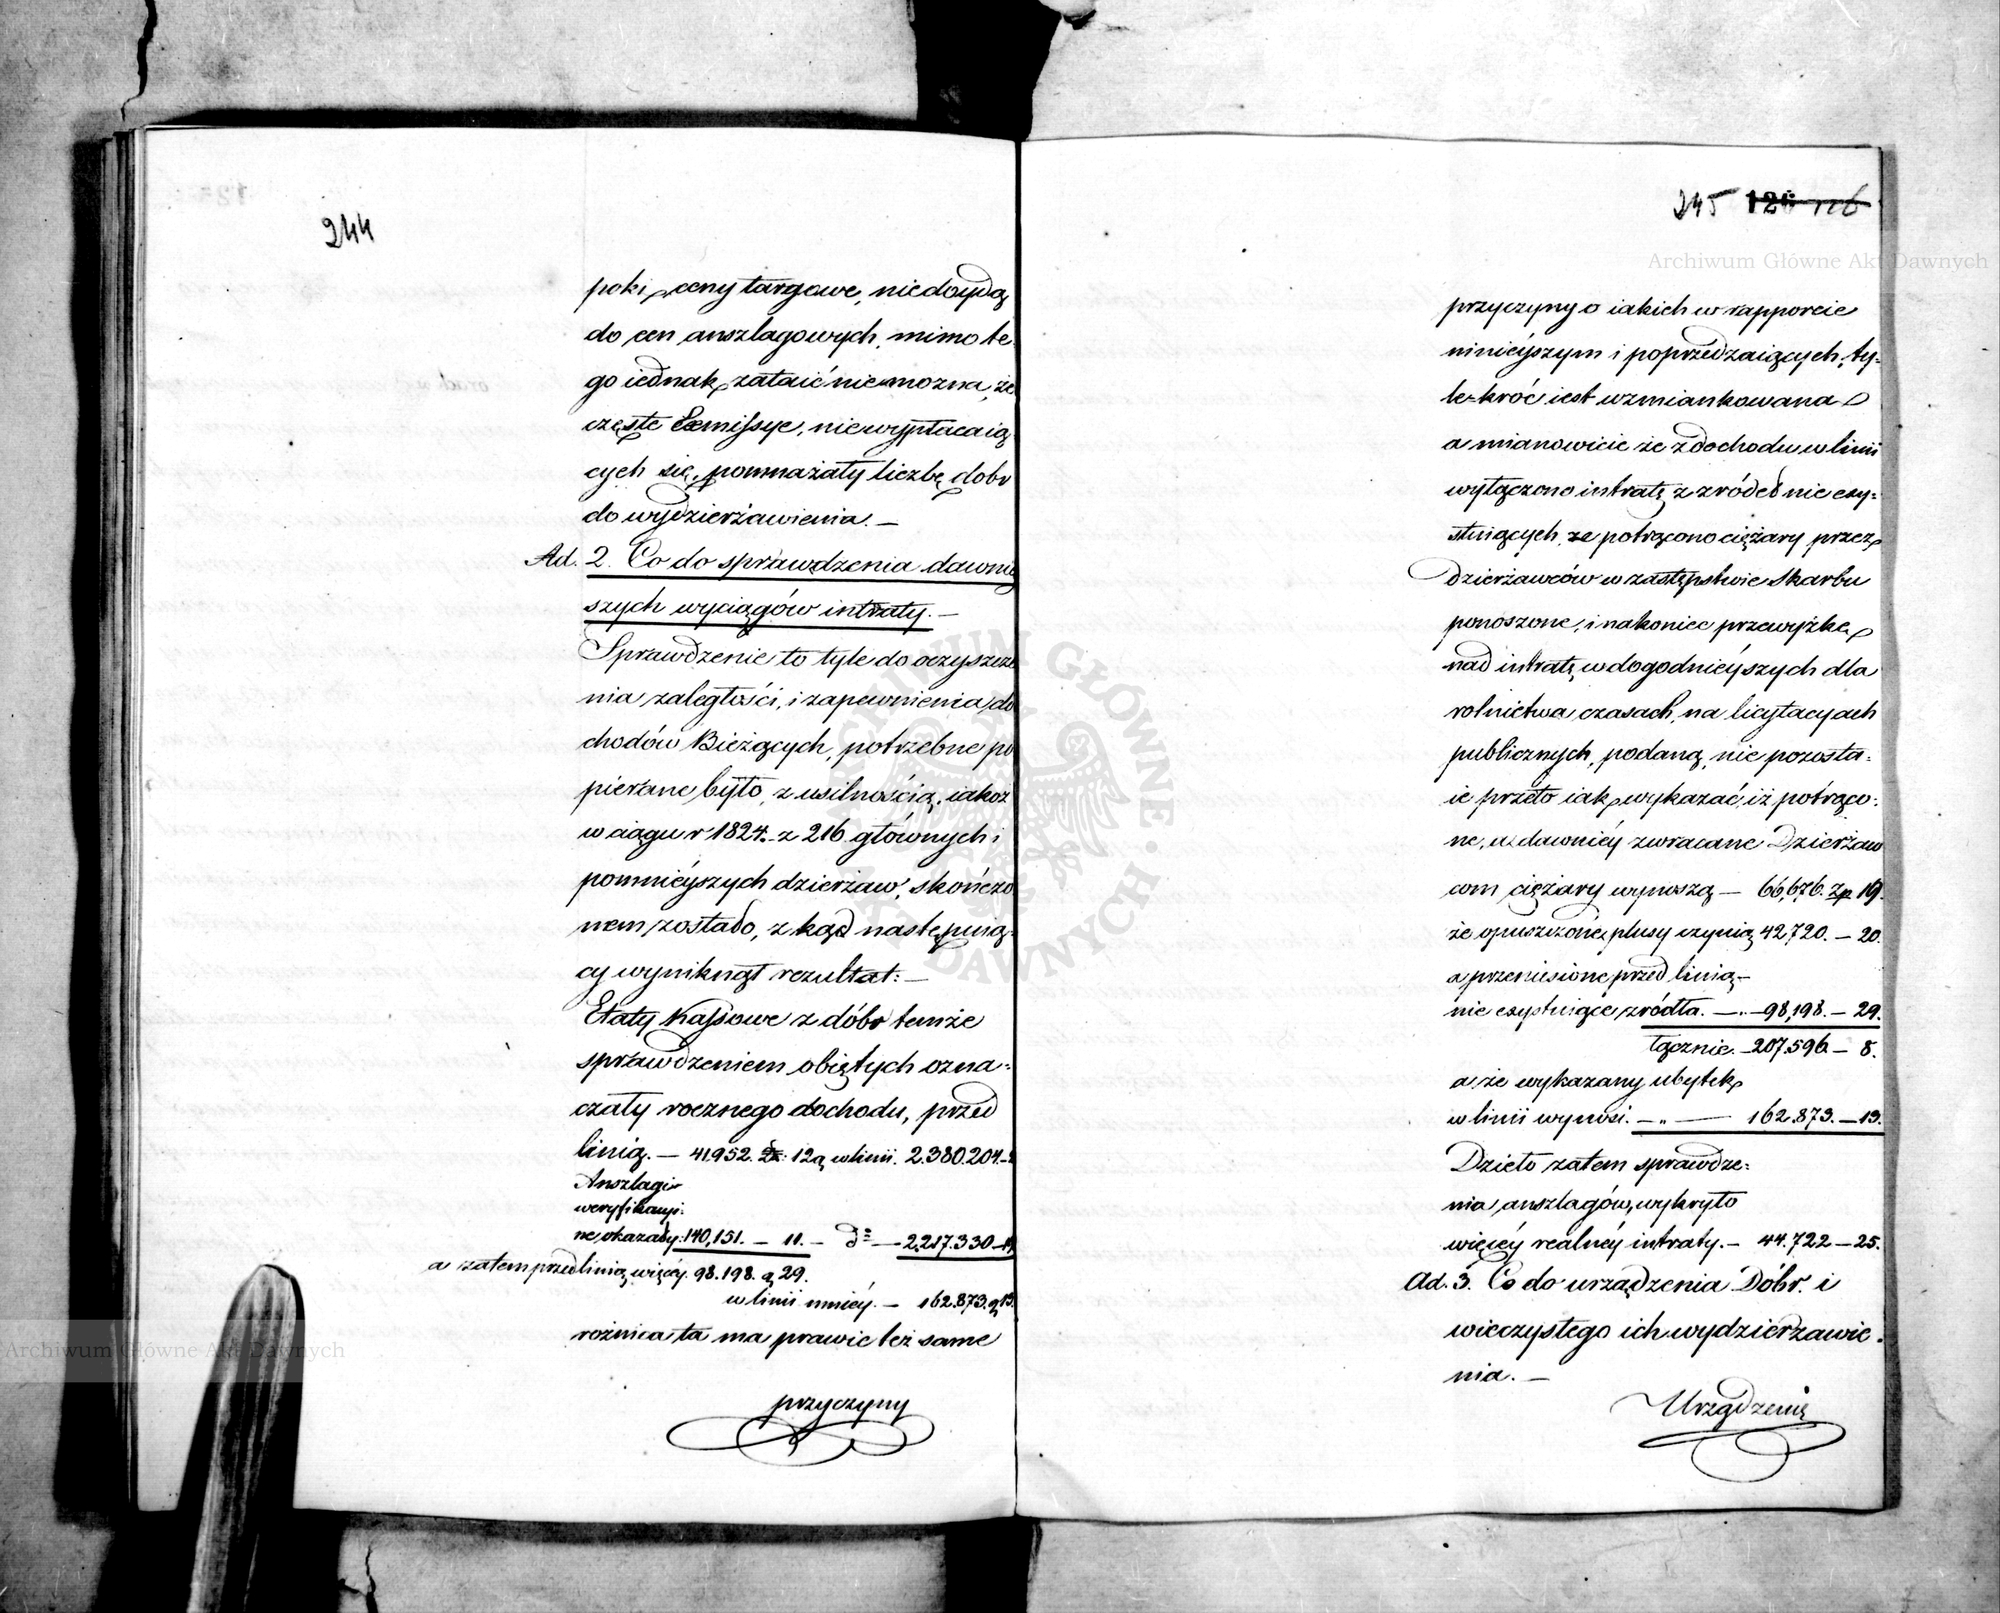 244
poki ceny targowe, niedoydą
do cen anszlagowych, mimo te
go iednak zataić nie mozna, że
częste Exmissye, niewypłacaią
cych się, pomnażały liczbę dobr
do wydzierżawienia. —
Ad. 2. Co do sprawdzenia dawnie
szych wyciągów intraty. —
Sprawdzenie to tyle do oczyszcze
nia zaległości, i zapewnienia do
chodów Bieżących, potrzebne po
pierane było, z usilnością, iakoż
w ciągu r 1824. z 216 głównych i
pomnieyszych dzierżaw, skończo
nem zostało, z kąd następuią
cy wyniknął rezultat: —
Etaty Kassowe z dóbr temże
sprawdzeniem obiętych ozna-
czały rocznego dochodu, przed
linią. — 41.952. Zł: 12 g w linii. 2.380.204.—
Anszlagi
weryfikacyi-
ne okazały: 140,151. — 11. — d° — 2,217.330 — 11
a zatem przed linią więcéy. 98.198. g 29.
w linii mniéy. — 162.873. g 13.
rożnica ta ma prawie też same
przyczyny
245 126 126
Archiwum Główne Akt Dawnych
przyczyny o iakich w rapporcie
ninieyszym i poprzedzaiących, ty-
le-kroć iest wzmiankowana
a mianowicie że z dochodu w linii
wyłączono intratę z zródeł nie exy-
stuiących, że potrącono ciężary przez
Dzierżawców w zastępstwie Skarbu
ponoszone, i nakoniec przewyżkę
nad intratę w dogodnieyszych dla
rolnictwa czasach, na licytacyach
publicznych, podaną, nie pozosta-
ie przeto iak wykazać, iż potrąco-
ne, a dawniéy zwracane Dzierżaw
com ciężary wynoszą — 66,676. zp 19.
że opuszczone plusy czynią 42,720. — 20.
a przeniesione przed linią —
nie exystuiące zródła. — „ — 98,198. — 29.
łącznie. — 207.596 — 8.
a że wykazany ubytek
w linii wynosi. — „ — 162.873. — 13.
Dzieło zatem sprawdze-
nia anszlagów, wykryto
więcéy realnéy intraty. — 44.722 — 25.
Ad. 3. Co do urządzenia Dóbr. i
wieczystego ich wydzierzawie-
nia. —
Urządzenie
ARCHIWUM GŁÓWNE AKT DAWNYCH
Archiwum Główne Akt Dawnych